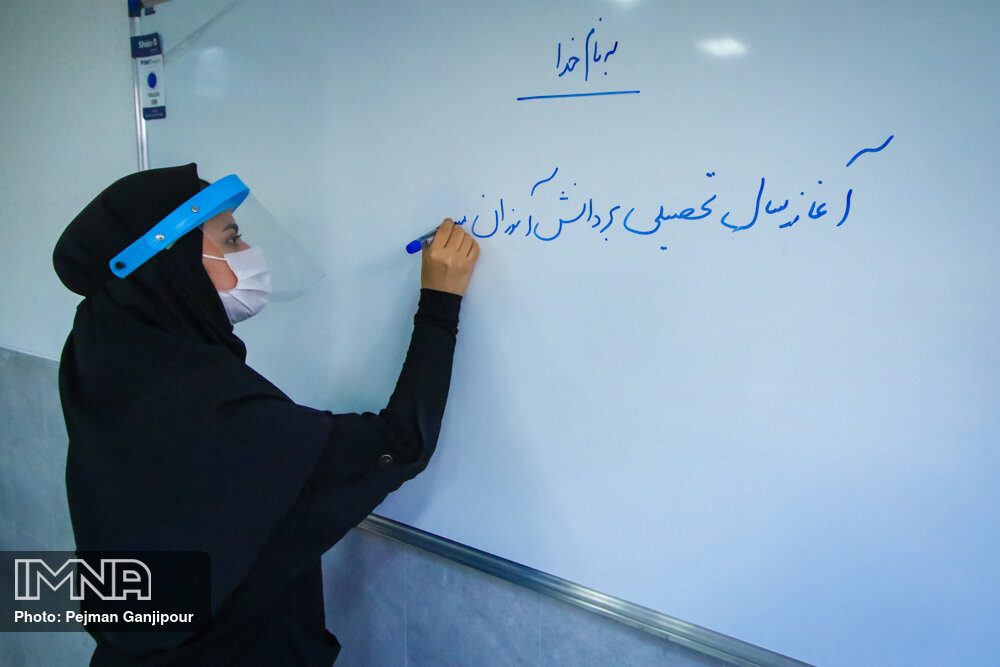 به نام خدا
آغاز سال تحصیلی بر دانش آموزان
IMNA
Photo: Pejman Ganjipour